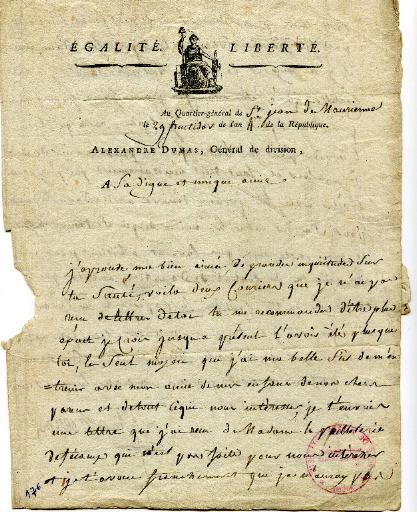 ÉGALITÉ. LIBERTÉ.
Au Quartier-général de St jean de Maurienne
le 29 fructidor de l'an de la République.
ALEXANDRE DUMAS, Général de division,
A Sa digne et unique amie.
j'eprouve, ma bien aimée de grandes inquiétudes Sur
ta Santé, voila deux Couriers que je n'ai pas
recu de lettres de toi tu me recommandes d'être plus
exact je Crois jusqu'a présent l'avoir été plus que
toi, le Seul moyen que j'ai ma belle
avec mon amie de mon enfant de nos chers
parens et de tout ce qui nous intéresse, je t'envoie
une lettre que j'ai recu de Madame la
pour nous intéresser
et je t'avoue franchement que je n'auray pas
176